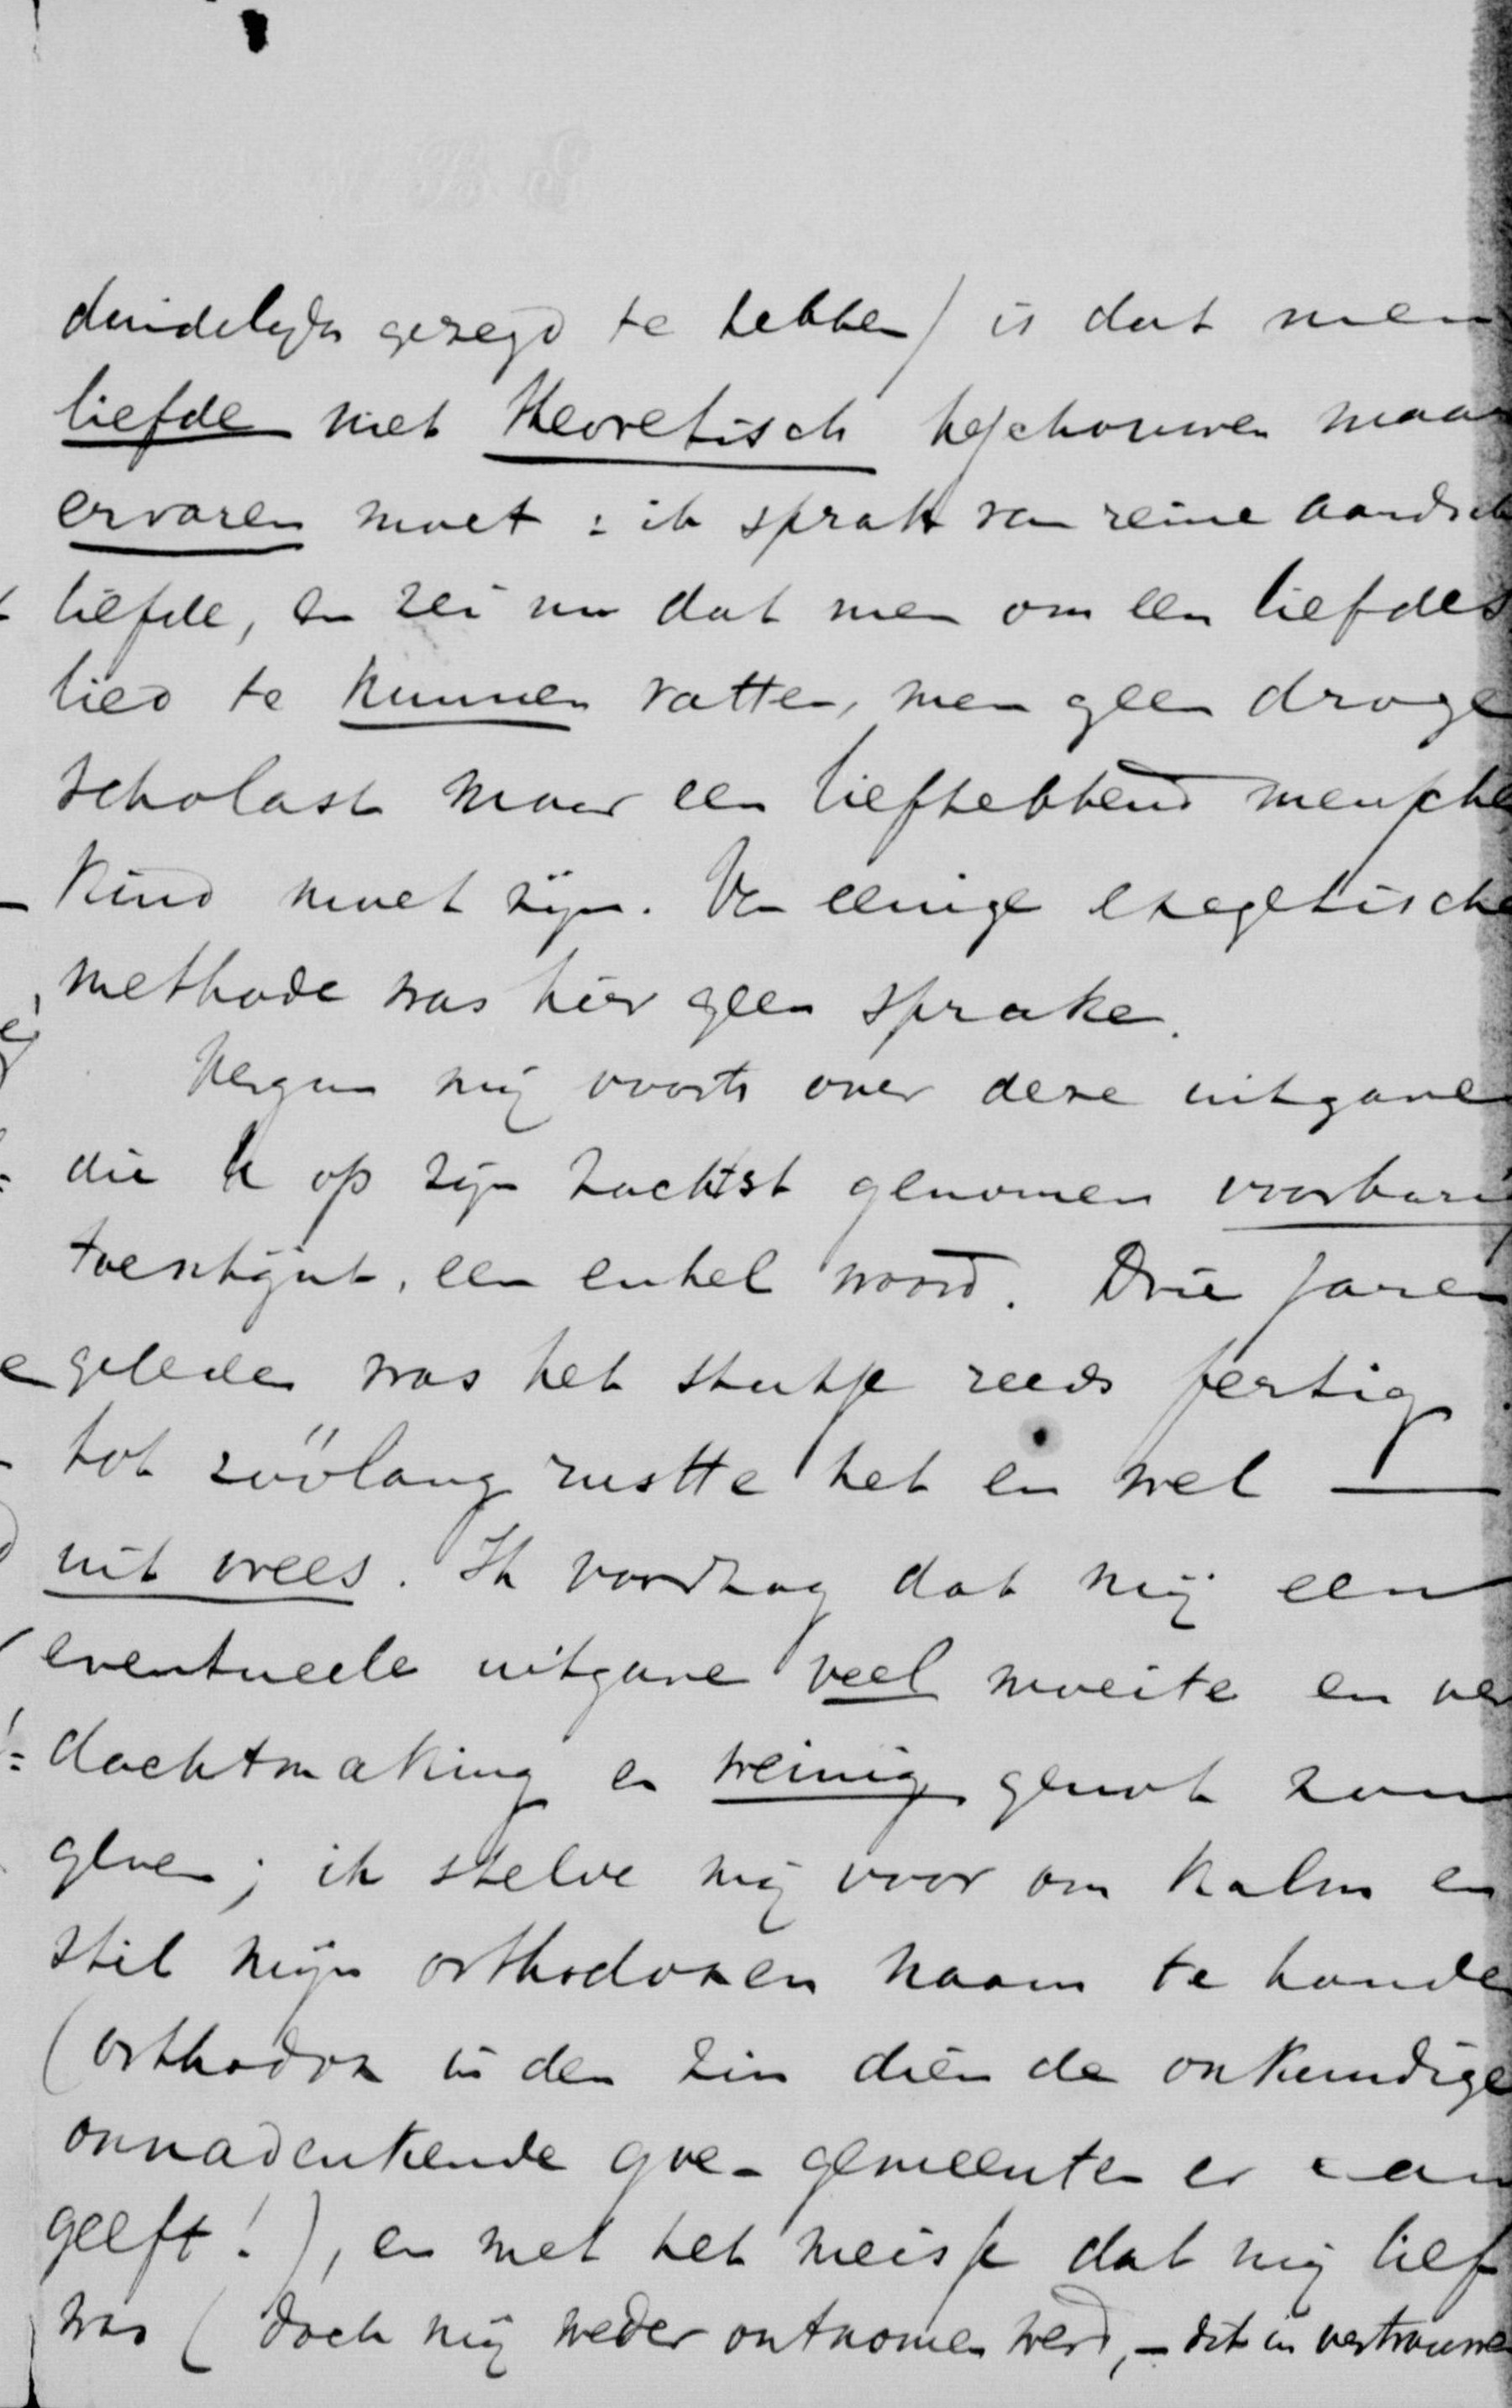 duidelijk gezegd te hebben) is dat men
liefde niet theoretisch beschouwen maar
ervaren moet: ik sprak van reine aardsche
liefde, en zei nu dat men om een liefdes
lied te kunnen vatten, men geen droge
scholast maar een liefhebbend menschen
kind moet zijn. Van eenige exegetische
methode was hier geen sprake.
Vergun mij voorts over deze uitgave
die U op zijn zachtst genomen voorbarig
toeschijnt, een enkel woord. Drie jaren
geleden was het stukje reeds fertig.
tot zóólang rustte het en wel —
uit vrees. Ik voorzag dat mij een
eventueele uitgave veel moeite en ver
dachtmaking en weinig genot zou
geven; ik stelde mij voor om kalm en
stil mijn orthodoxen naam te houden
(orthodox in den zin dien de onkundige
onnadenkende goe-gemeente er aan
geeft!), en met het meisje dat mij lief
was (doch mij weder ontnomen werd, – dit in vertrouwen